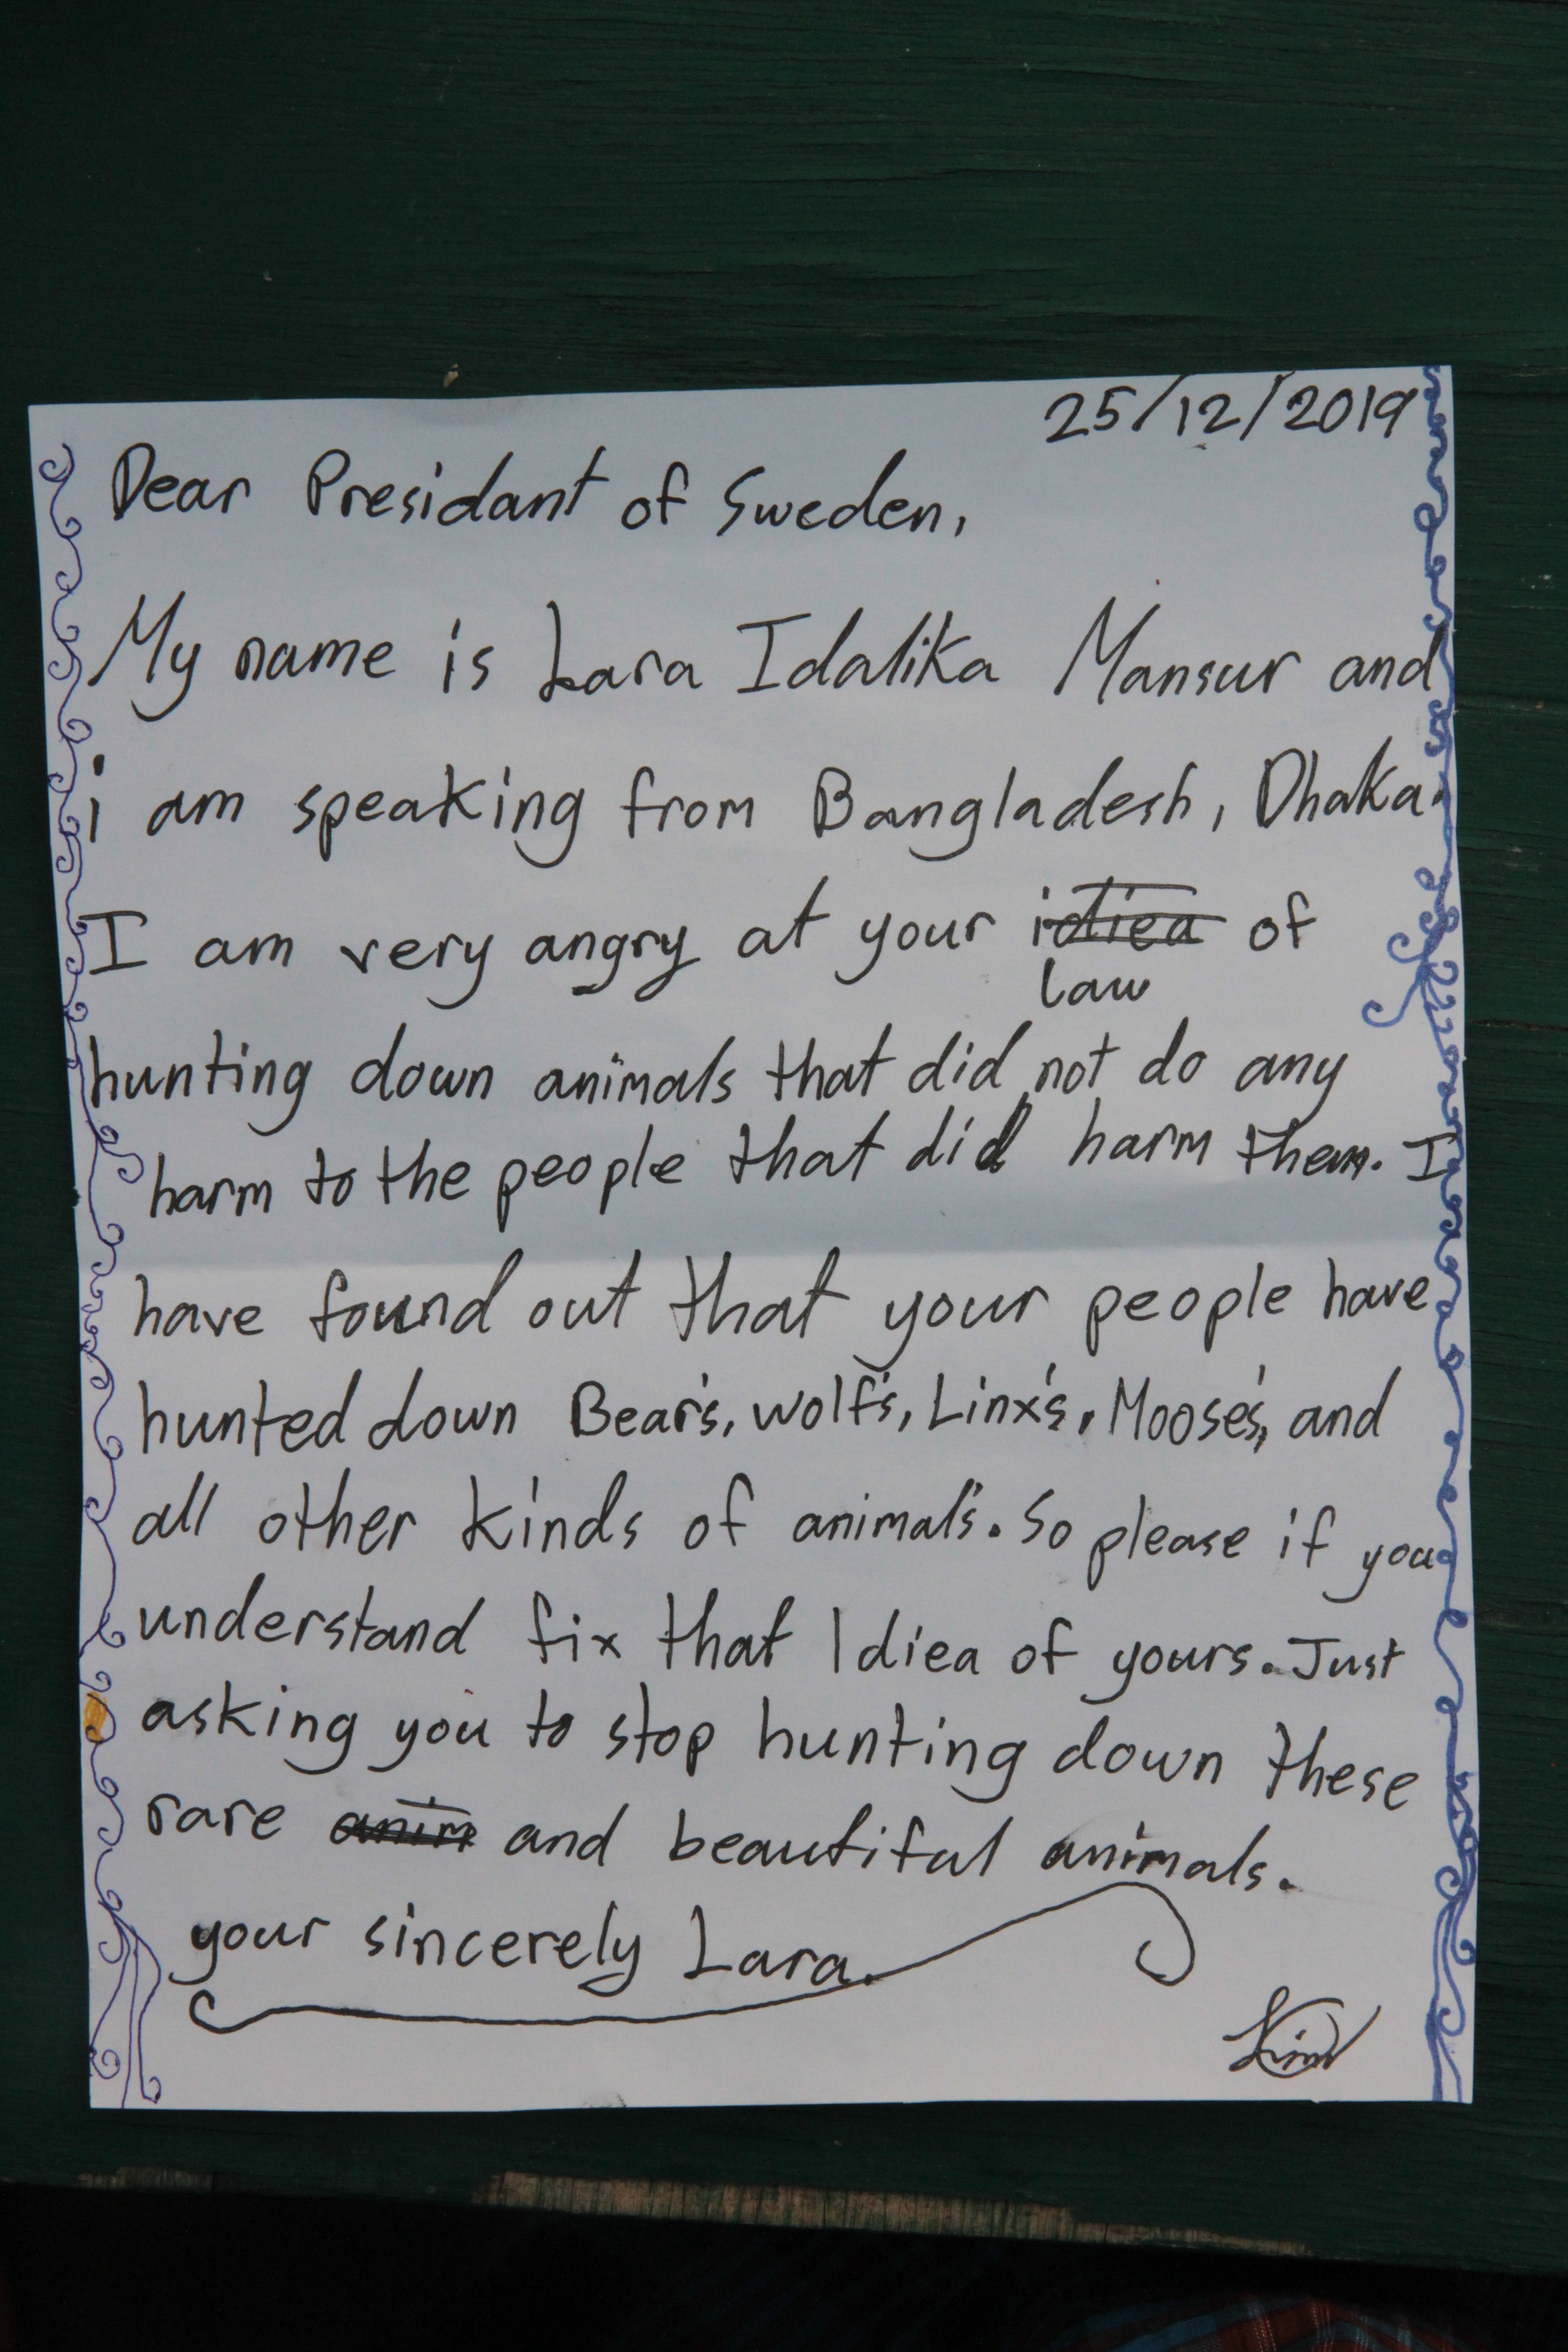 25/12/2019
Dear Presidant of Sweden,
My name is Lara Idalika Mansur and
i am speaking from Bangladesh, Dhaka.
I am very angry at your idiea of
law
hunting down animals that did not do any
harm to the people that did harm them. I
have found out that your people have
hunted down Bear's, wolf's, Linx's, Moose's, and
all other kinds of animal's. So please if you
understand fix that Idiea of yours. Just
asking you to stop hunting down these
rare anim and beautiful animals.
your sincerely Lara.